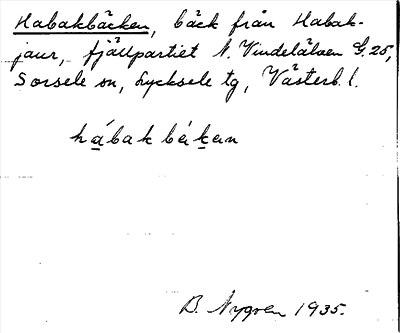 Habakbäcken, bäck från Habak-
jaur, fjällpartiet N. Vindelälven G. 25,
Sorsele sn, Lycksele tg, Västerb. l.
hábakbákan
B. Nygren 1935.